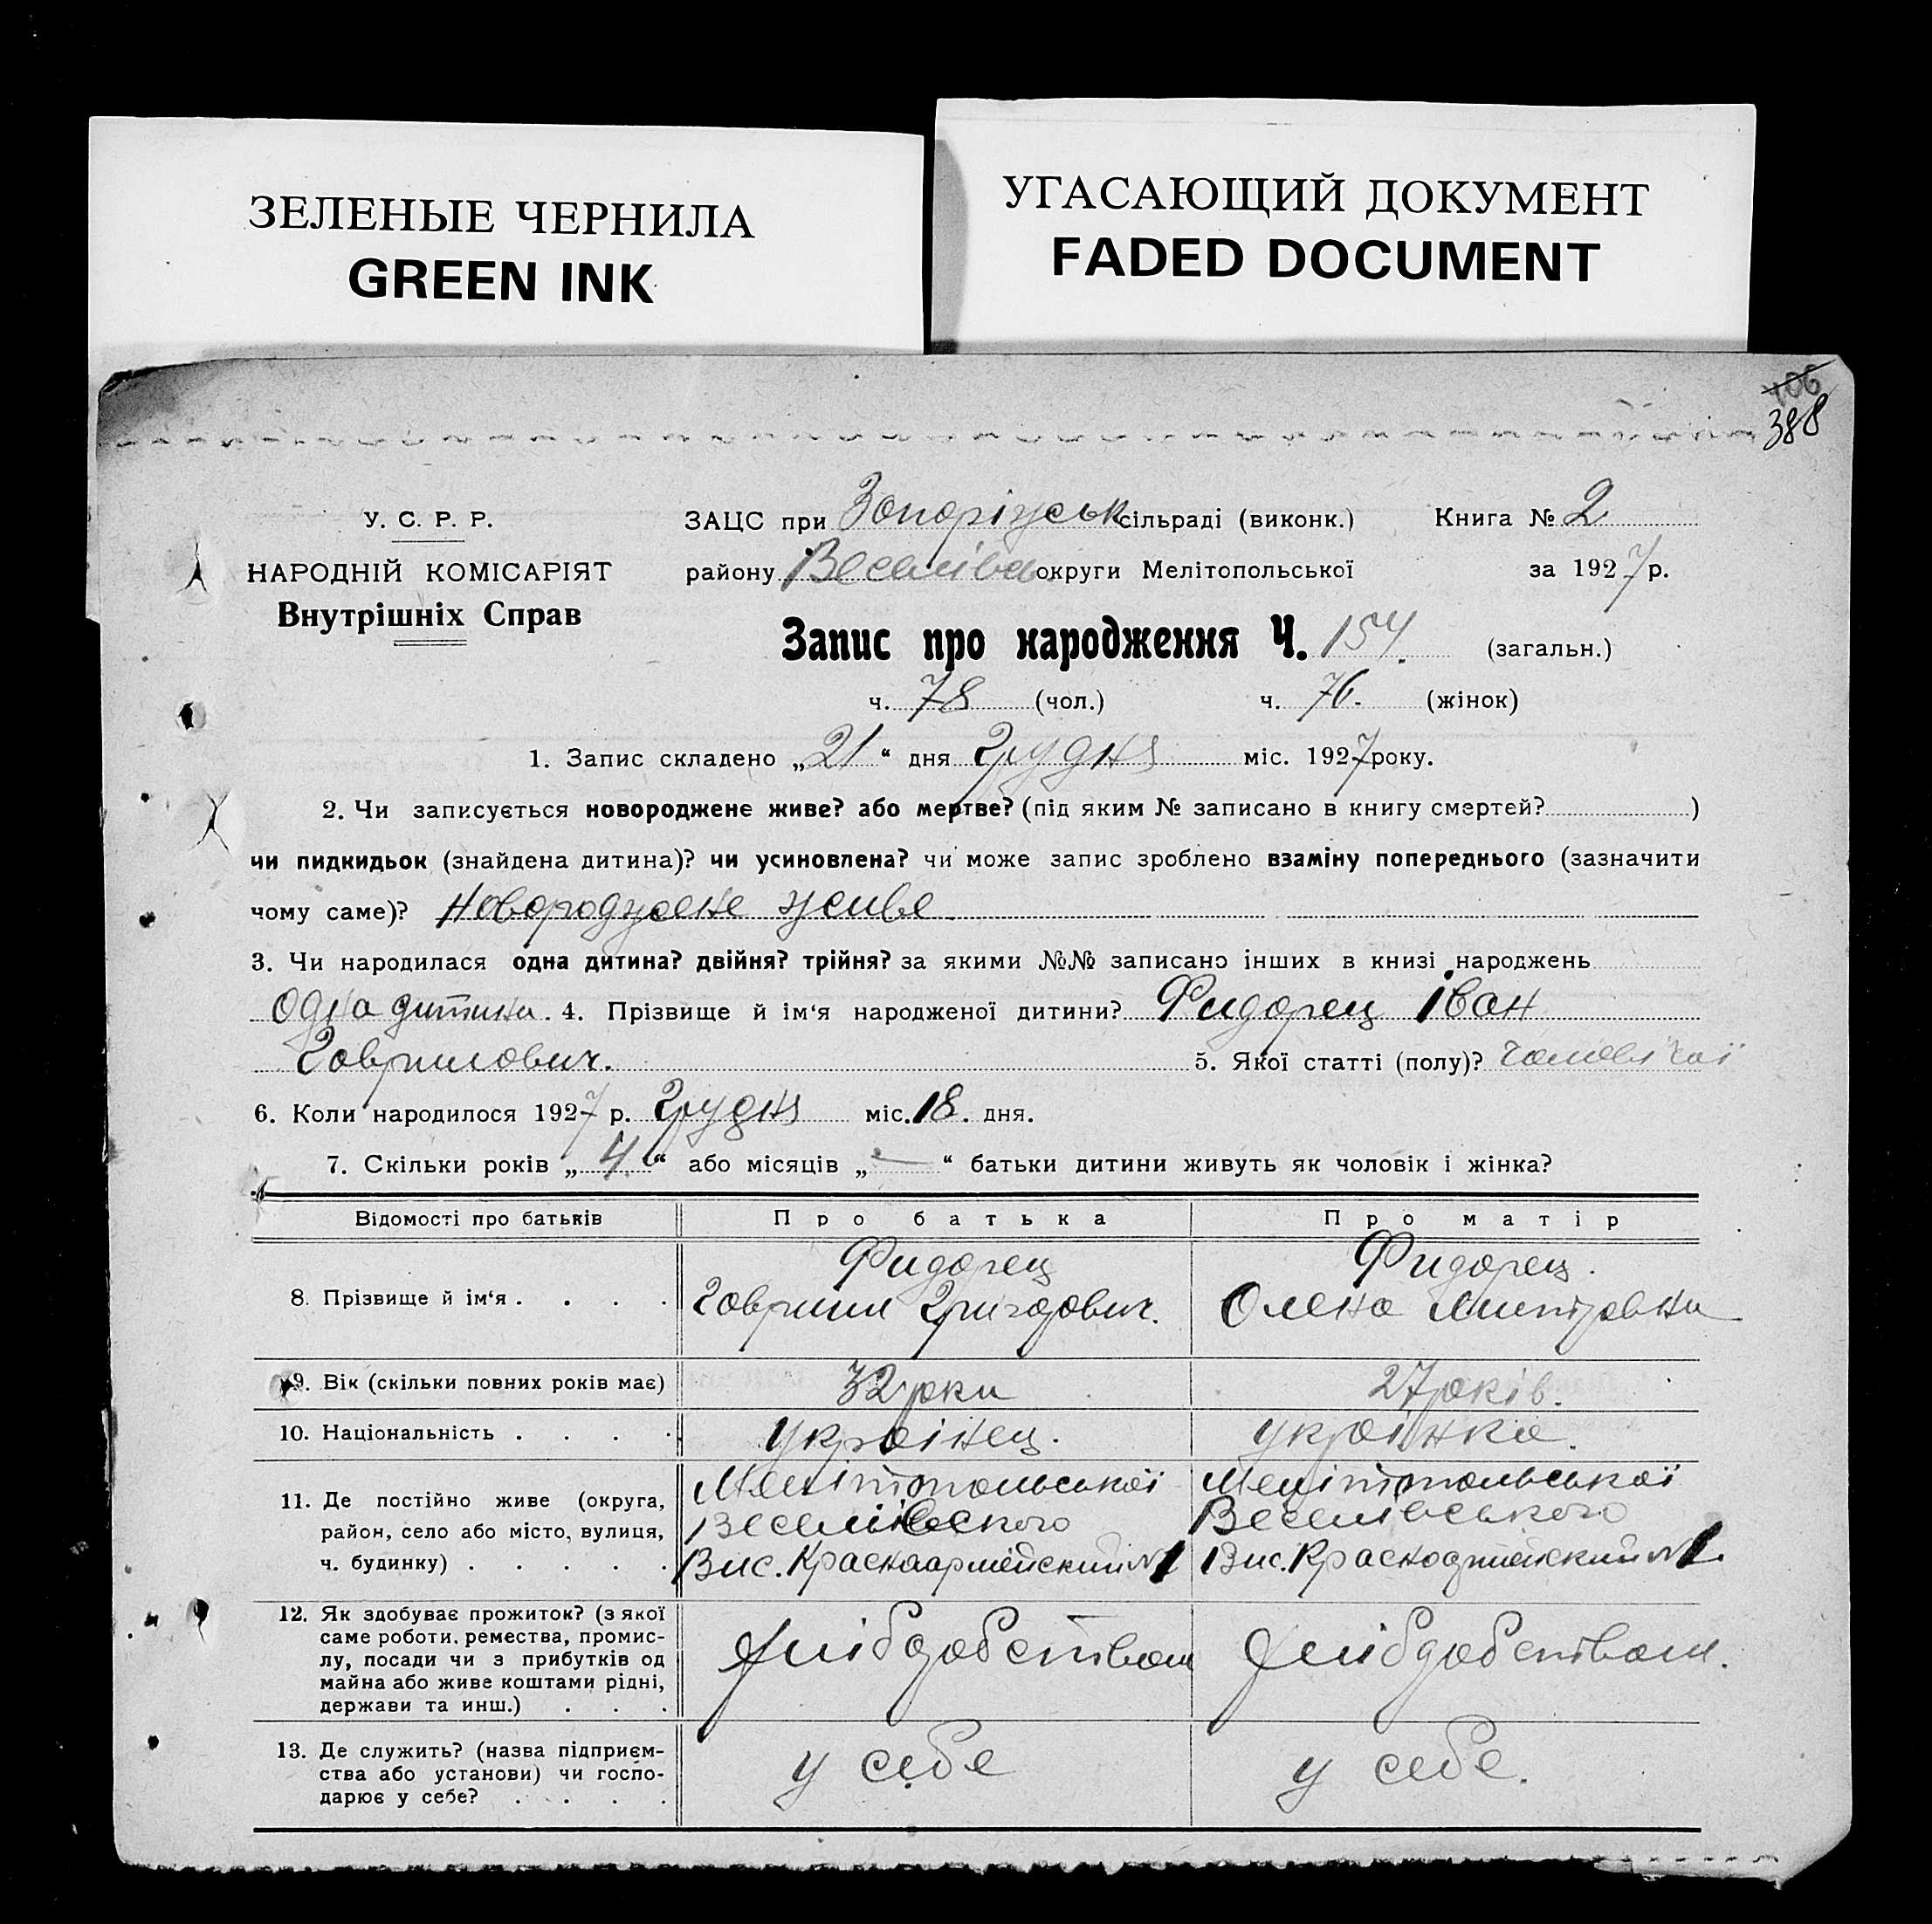 ЗЕЛЕНЫЕ ЧЕРНИЛА
GREEN INK
УГАСАЮЩИЙ ДОКУМЕНТ
FADED DOCUMENT
406
388
У. С. Р. Р.
НАРОДНІЙ КОМІСАРІЯТ
Внутрішніх Справ
ЗАЦС при Запоріжськ сільраді (виконк.) Книга № 2
району Веселівс округи Мелітопольської за 1927 р.
Запис про народження Ч. 154. (загальн.)
ч. 78 (чол.) ч. 76. (жінок)
1. Запис складено „21“ дня Грудня міс. 1927 року.
2. Чи записується новороджене живе? або мертве? (під яким № записано в книгу смертей? )
чи пидкидьок (знайдена дитина)? чи усиновлена? чи може запис зроблено взаміну попереднього (зазначити
чому саме)? Новороджене живе.
3. Чи народилася одна дитина? двійня? трійня? за якими №№ записано інших в книзі народжень
Одна дитина. 4. Прізвище й ім‘я народженої дитини? Фидорец Іван
Гаврилович. 5. Якої статті (полу)? Чоловічої
6. Коли народилося 1927 р. Грудня міс. 18. дня.
7. Скільки років „4“ або місяців „—“ батьки дитини живуть як чоловік і жінка?
Відомості про батьків Про батька Про матір
8. Прізвище й ім‘я . . . . Фидорец Гавриил Григорович. Фидорец. Олена Дмитровна
9. Вік (скільки повних років має) 32 роки 27 років.
10. Національність . . . . Українец. Українка.
11. Де постійно живе (округа, Мелітопольської Мелітопольської
район, село або місто, вулиця, Веселівского Веселівського
ч. будинку) . . . . . Вис. Краснаармейский №1 Вис. Красноармейский №1.
12. Як здобуває прожиток? (з якої
саме роботи, ремества, промис-
лу, посади чи з прибутків од Хлібдобством Хлібдобством.
майна або живе коштами рідні,
держави та инш.) . . .
13. Де служить? (назва підприєм-
ства або установи) чи госпо- у себе у себе.
дарює у себе? . . . .